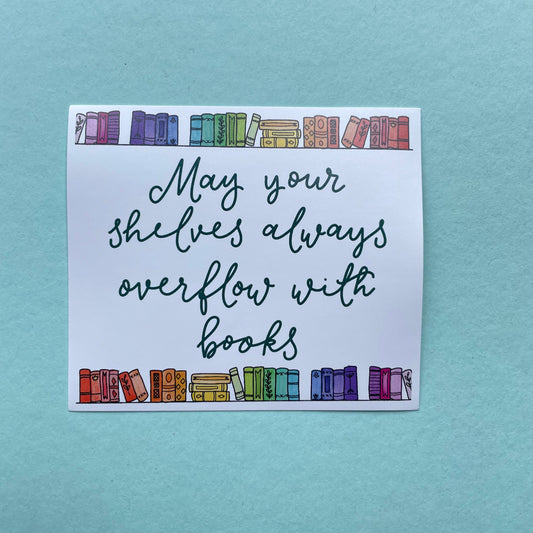 May your
shelves always
overflow with
books